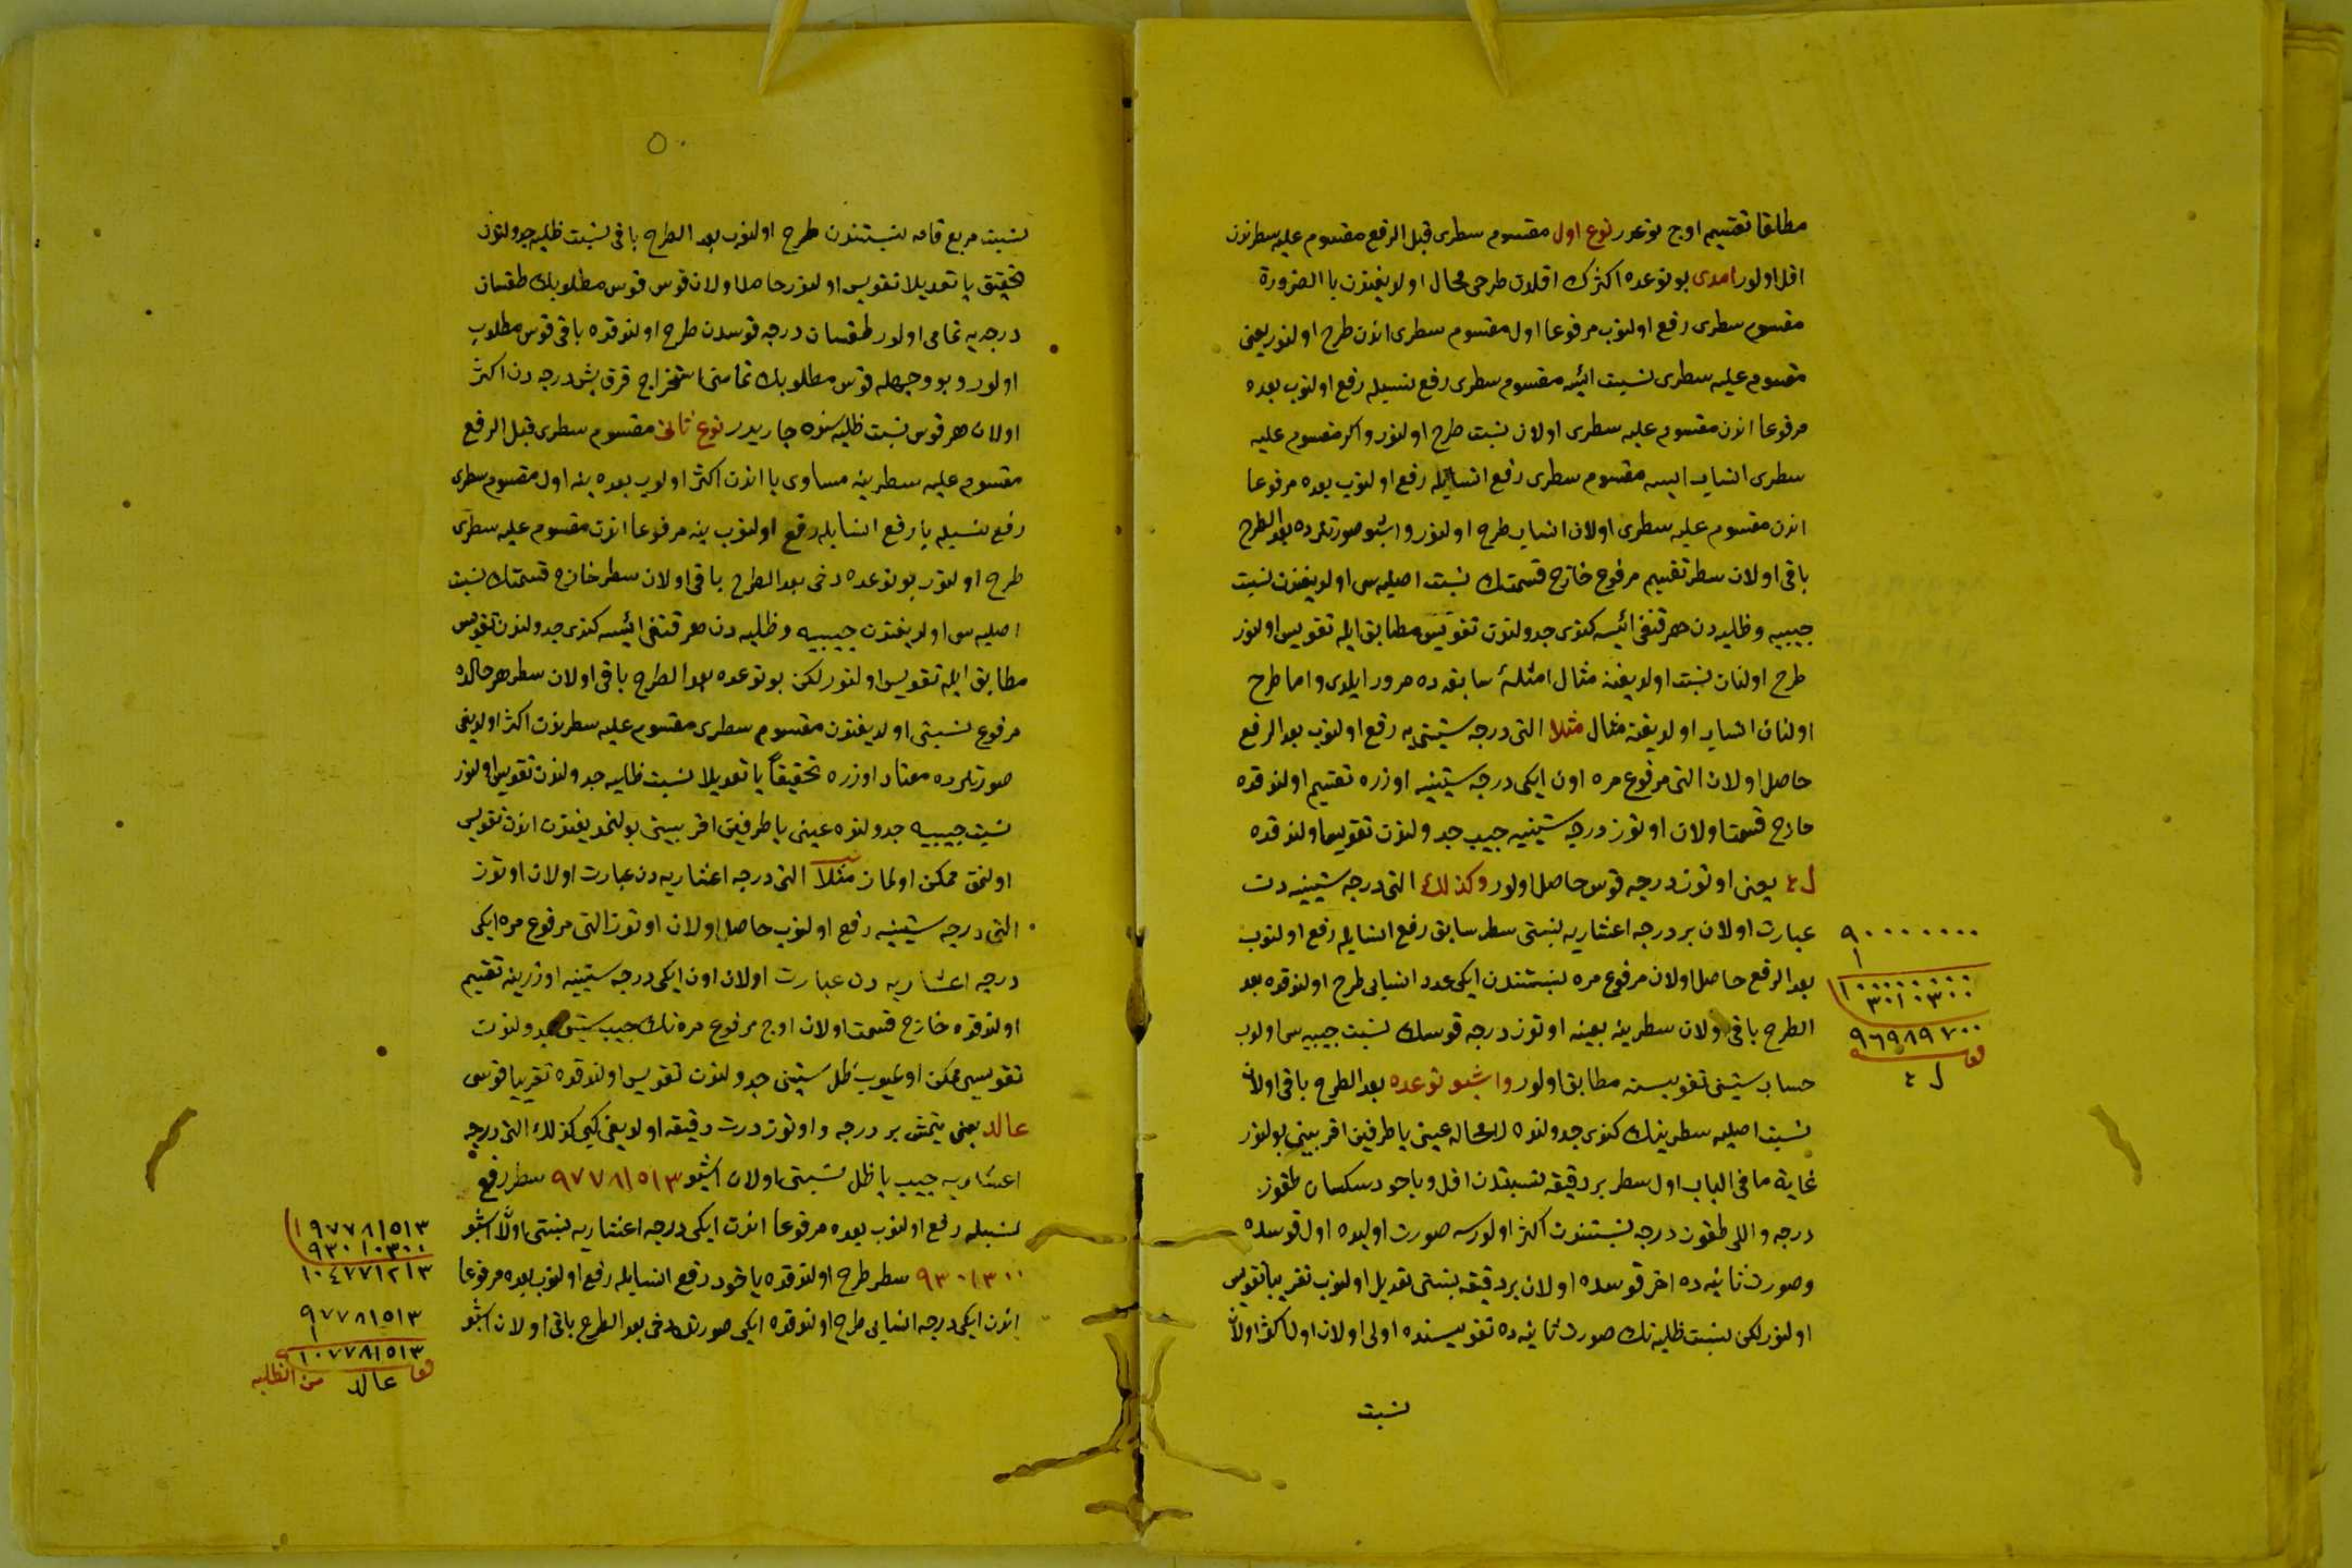 مطلقا تقسيم اوچ نوعدر نوع اول مقسوم سطرى قبل الرفع مقسوم عليه سطرندن
اقل اولور امدى بو نوعده اكثرك اقلدن طرحى محال اولديغندن باالضرورة
مقسوم سطرى رفع اولنوب مرفوعا اول مقسوم سطرى اندن طرح اولنور يعنى
مقسوم عليه سطرى نسبت ائيسه مقسوم سطرى رفع نسبيله رفع اولنوب بعده
مرفوعا اندن مقسوم عليه سطرى اولان نسبت طرح اولنور واكر مقسوم عليه
سطرى انساب ايسه مقسوم سطرى رفع انسابيله رفع اولنوب بعده مرفوعا
اندن مقسوم عليه سطرى اولان انساب طرح اولنور واشبو صورتلرده بعد الطرح
باقى اولان سطر تقسيم مرفوع خارج قسمتك نسبت اصليه سى اولديغندن نسبت
جيبيه وظليه دن هر قنغى ائيسه كندى جدولندن تقويس مطابق ايله تقويس اولنور
طرح اولنان نسبت اولديغنه مثال امثلهٔ سابقه ده مرور ايلدى واما طرح
اولنان انساب اولديغنه مثال مثلا التى درجه ستينى يه رفع اولنوب بعد الرفع
حاصل اولان التى مرفوع مره اون ايكى درجه ستينيه اوزره تقسيم اولندقده
خارج قسمت اولان اوتوز درجه ستينيه جيب جدولندن تقويس اولندقده
ل ٤ يعنى اوتوز درجه قوس حاصل اولور وكذلك التى درجه ستينيه دن
عبارت اولان بر درجه اعشاريه نسبتى سطر سابق رفع انسابله رفع اولنوب
بعد الرفع حاصل اولان مرفوع مره نسبتندن ايكى عدد انسابى طرح اولندقده بعد
الطرح باقى اولان سطرينه بعينه اوتوز درجه قوسك نسبت جيبيه سى اولوب
حساب ستينى تقويسنه مطابق اولور واشبو نوعده بعد الطرح باقى اولان
نسبت اصليه سطرينك كندى جدولنده لامحاله عينى يا طرفين اقربينى بولنور
غاية ما فى الباب اول سطر بر دقيقه نسبتندن اقل وياخود سكسان طقوز
درجه واللى طقوز درجه نسبتندن اكثر اولورسه صورت اوليده اول قوسده
وصورت ثانيه ده اخر قوسده اولان بر دقيقه نسبتى تعديل اولنوب تقريبا تقويس
اولنور لكن نسبت ظليه نك صورت ثانيه ده تقويسنده اولى اولان اول اكثر اولان
نسبت
٩٠٠٠٠٠٠٠٠
١
١٠٠٠٠٠٠٠٠
٣٠١٠٣٠٠
٩٦٩٨٩٧٠٠
قوس
ل ٤
٥٠
نسبت مربع قامه نسبتندن طرح اولنوب بعد الطرح باقى نسبت ظليه جدولندن
تحقيق يا تعديلا تقويس اولنور حاصل اولان قوس قوس مطلوبك طقسان
درجه يه تمامى اولور طقسان درجه قوسدن طرح اولندقده باقى قوس مطلوب
اولور وبو وجهله قوس مطلوبك تمامنى استخراج قرق بش درجه دن اكثر
اولان هر قوس نسبت ظليه سنده جاريدر نوع ثانى مقسوم سطرى قبل الرفع
مقسوم عليه سطرينه مساوى يا اندن اكثر اولوب بعده ينه اول مقسوم سطرى
رفع نسبيله يا رفع انسابله رفع اولنوب ينه مرفوعا اندن مقسوم عليه سطرى
طرح اولنور بو نوعده دخى بعد الطرح باقى اولان سطر خارج قسمتك نسبت
اصليه سى اولديغندن جيبيه وظليه دن هر قنغى ائيسه كندى جدولندن تقويس
مطابق ايله تقويس اولنور لكن بو نوعده بعد الطرح باقى اولان سطر هر حالده
مرفوع نسبتى اولديغندن مقسوم سطرى مقسوم عليه سطرندن اكثر اولديغى
صورتلرده معتاد اوزره تحقيقاً يا تعديلا نسبت ظليه جدولندن تقويس اولنور
نسبت جيبيه جدولنده عينى يا طرفين اقربينى بولنمديغندن اندن تقويس
اولنمق ممكن اولماز مثلا التى درجه اعشاريه دن عبارت اولان اوتوز
التى درجه ستينيه رفع اولنوب حاصل اولان اوتوز التى مرفوع مره ايكى
درجه اعشاريه دن عبارت اولان اون ايكى درجه ستينيه اوزرينه تقسيم
اولندقده خارج قسمت اولان اوچ مرفوع مره نك جيب ستينى جدولندن
تقويسى ممكن اولميوب ظل ستينى جدولندن تقويس اولندقده تقريبا قوسى
عالد يعنى يتمش بر درجه واوتوز درت دقيقه اولديغى كبى كذلك التى درجه
اعشاريه جيب يا ظل نسبتى اولان اشبو ٩٧٧٨١٥١٣ سطر رفع
نسبيله رفع اولنوب بعده مرفوعا اندن ايكى درجه اعشاريه نسبتى اولان اشبو
٩٣٠١٠٣٠٠ سطر طرح اولندقده ياخود رفع انسابله رفع اولنوب بعده مرفوعا
اندن ايكى درجه انسابى طرح اولندقده ايكى صورتده دخى بعد الطرح باقى اولان اشبو
١٩٧٧٨١٥١٣
٩٣٠١٠٣٠٠
١٠٤٧٧١٢١٣
٩٧٧٨١٥١٣
١
١٠٧٧٨١٥١٣
قوس عالد من الظليه